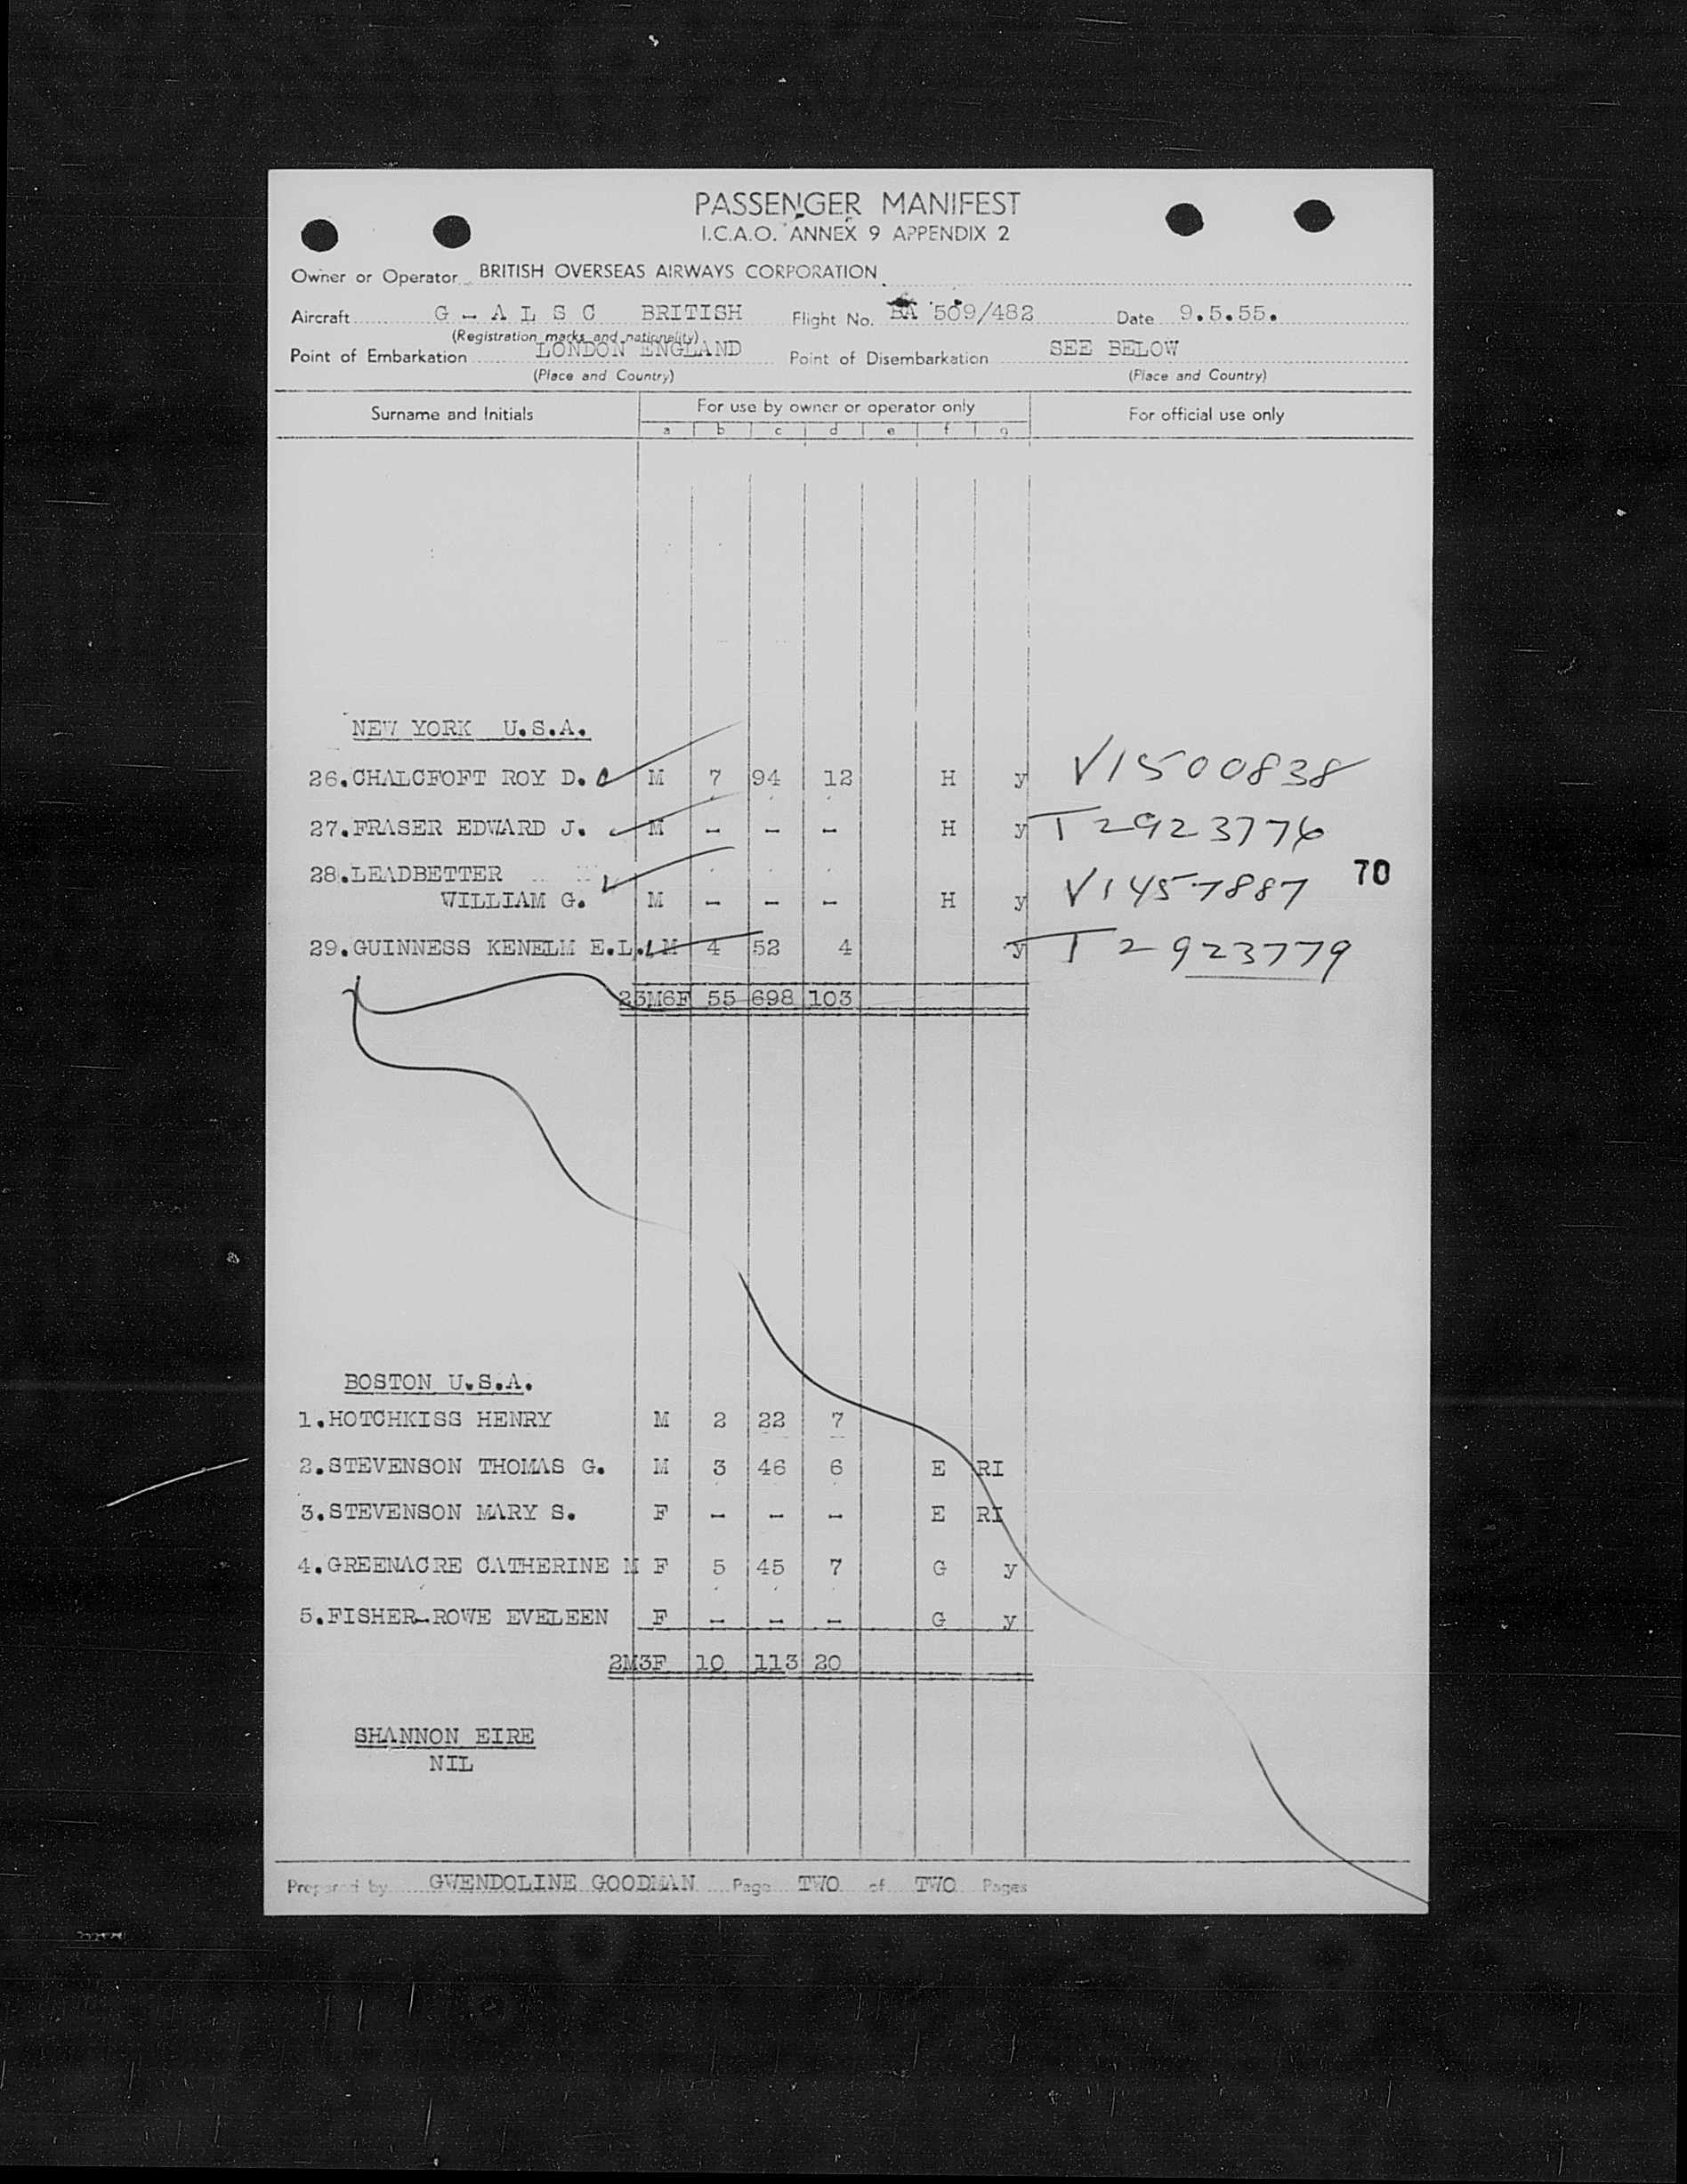 PASSENGER MANIFEST
I.C.A.O. ANNEX 9 APPENDIX 2
Owner or Operator BRITISH OVERSEAS AIRWAYS CORPORATION
Aircraft G - A L S C BRITISH Flight No. BA 509/482 Date 9.5.55.
(Registration marks and nationality)
Point of Embarkation LONDON ENGLAND Point of Disembarkation SEE BELOW
(Place and Country) (Place and Country)
Surname and Initials For use by owner or operator only For official use only
a b c d e f g
NEW YORK U.S.A.
26.CHALCFOFT ROY D. M 7 94 12 H y V1500838
27.FRASER EDWARD J. M - - - H y T2923776
28.LEADBETTER 70
WILLIAM G. M - - - H y V1457887
29.GUINNESS KENELM E.L. M 4 52 4 y T2923779
23M6F 55 698 103
BOSTON U.S.A.
1.HOTCHKISS HENRY M 2 22 7
2.STEVENSON THOMAS G. M 3 46 6 E RI
3.STEVENSON MARY S. F - - - E RI
4.GREENACRE CATHERINE M F 5 45 7 G y
5.FISHER-ROWE EVELEEN F - - - G y
2M3F 10 113 20
SHANNON EIRE
NIL
Prepared by GWENDOLINE GOODMAN Page TWO of TWO Pages